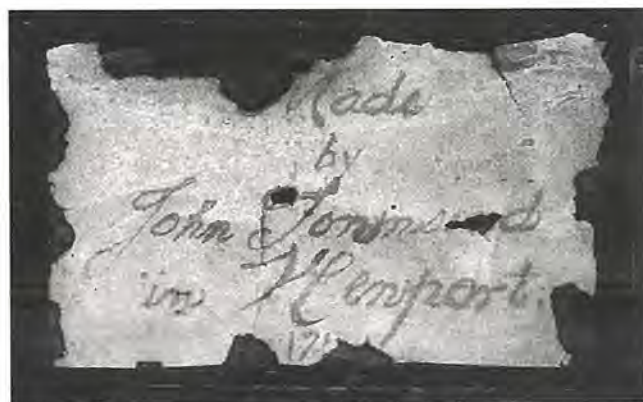 Made
by
John Townsend
in Newport.
17